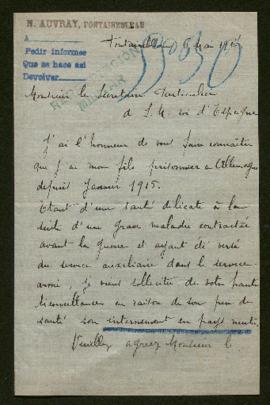 N. AUVRAY, FONTAINEBLEAU
A
Pedir informes
Que se hace así
Devolver
Fontainebleau Mai
Monsieur le Secrétaire Particulier
à S.M. roi d'Espagne
J'ai l'honneur de vous faire connaître
que j'ai mon fils prisonnier en Allemagne
depuis Janvier 1915.
Etant d'une santé délicate à la
suite d'une grave maladie contractée
avant la guerre et ayant été versé
du service auxiliaire dans le service
armé, je viens solliciter de votre haute
bienveillance en raison de son peu de
santé son internement en pays neutre.
Veuillez agréer Monsieur le